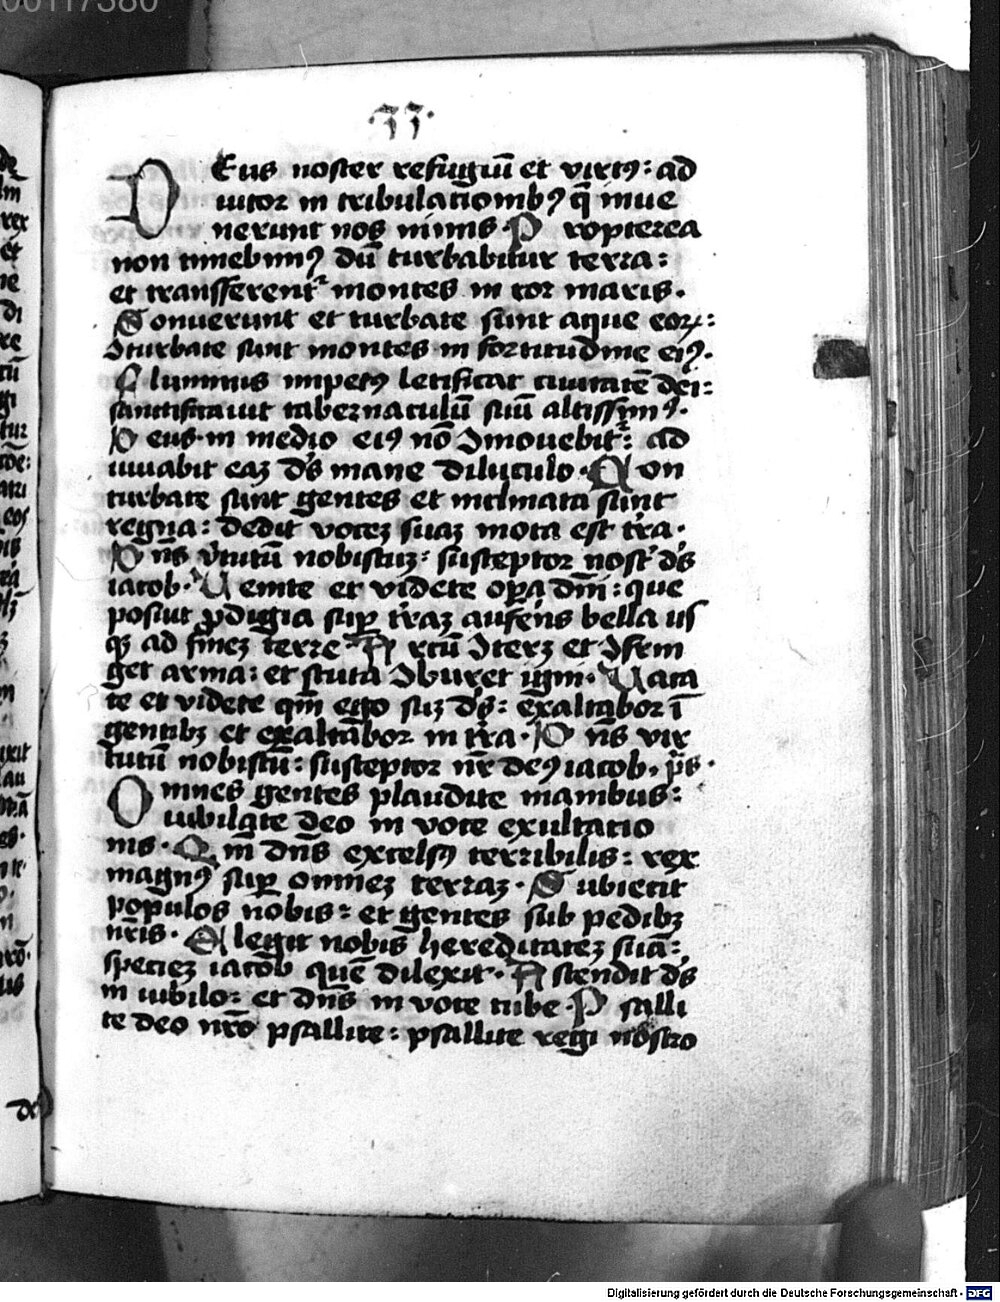 00117380
·33·
Deus noster refugiū et virtꝰ: ad
iutor in tribulacionibꝰ q̄ inue
nerunt nos nimis · Propterea
non timebimꝰ dū turbabitur terra:
et transferentr montes in cor maris.
Sonuerunt et turbate sunt aque eoꝝ:
Iturbate sunt montes in fortitudine eiꝰ.
Fluminis impetꝰ letificat ciuitatē dei:
sanctificauit tabernaculū suū altissimꝰ.
Deus in medio eiꝰ nō Imouebitr: ad
iuuabit eaꝫ ds̄ mane diluculo · Con
turbate sunt gentes et inclinata sunt
regna: dedit voceꝫ suaꝫ mota est tr̄a.
Dn̄s v̓tutū nobiscuꝫ: susceptor nost̓ ds̄
iacob · Venite et videte oꝑa dn̄i: que
posuit ꝓdigia suꝑ tr̄aꝫ auferēs bella us
qꝫ ad fineꝫ terre · Arcū Itereꝫ et Ifrin
get arma: et scuta Iburet igni · Vaca
te et videte qm̄ ego suꝫ ds̄: exaltabor ī
gentibꝫ et exaltabor in tr̄a · Dn̄s vir
tutū nobiscū: susceptor nr̄ deꝰ iacob. ps̄.
Omnes gentes plaudite manibus:
iubilate deo in voce exultacio
nis · Qm̄ dn̄s excelsꝰ terribilis: rex
magnꝰ suꝑ omneꝫ terraꝫ · Subiecit
populos nobis: et gentes sub pedibꝫ
nr̄is · Elegit nobis hereditateꝫ suā:
specieꝫ iacob quē dilexit · Ascendit ds̄
in iubilo: et dn̄s in voce tube · Psalli
te deo nr̄o psallite: psallite regi nostro
Digitalisierung gefördert durch die Deutsche Forschungsgemeinschaft - DFG